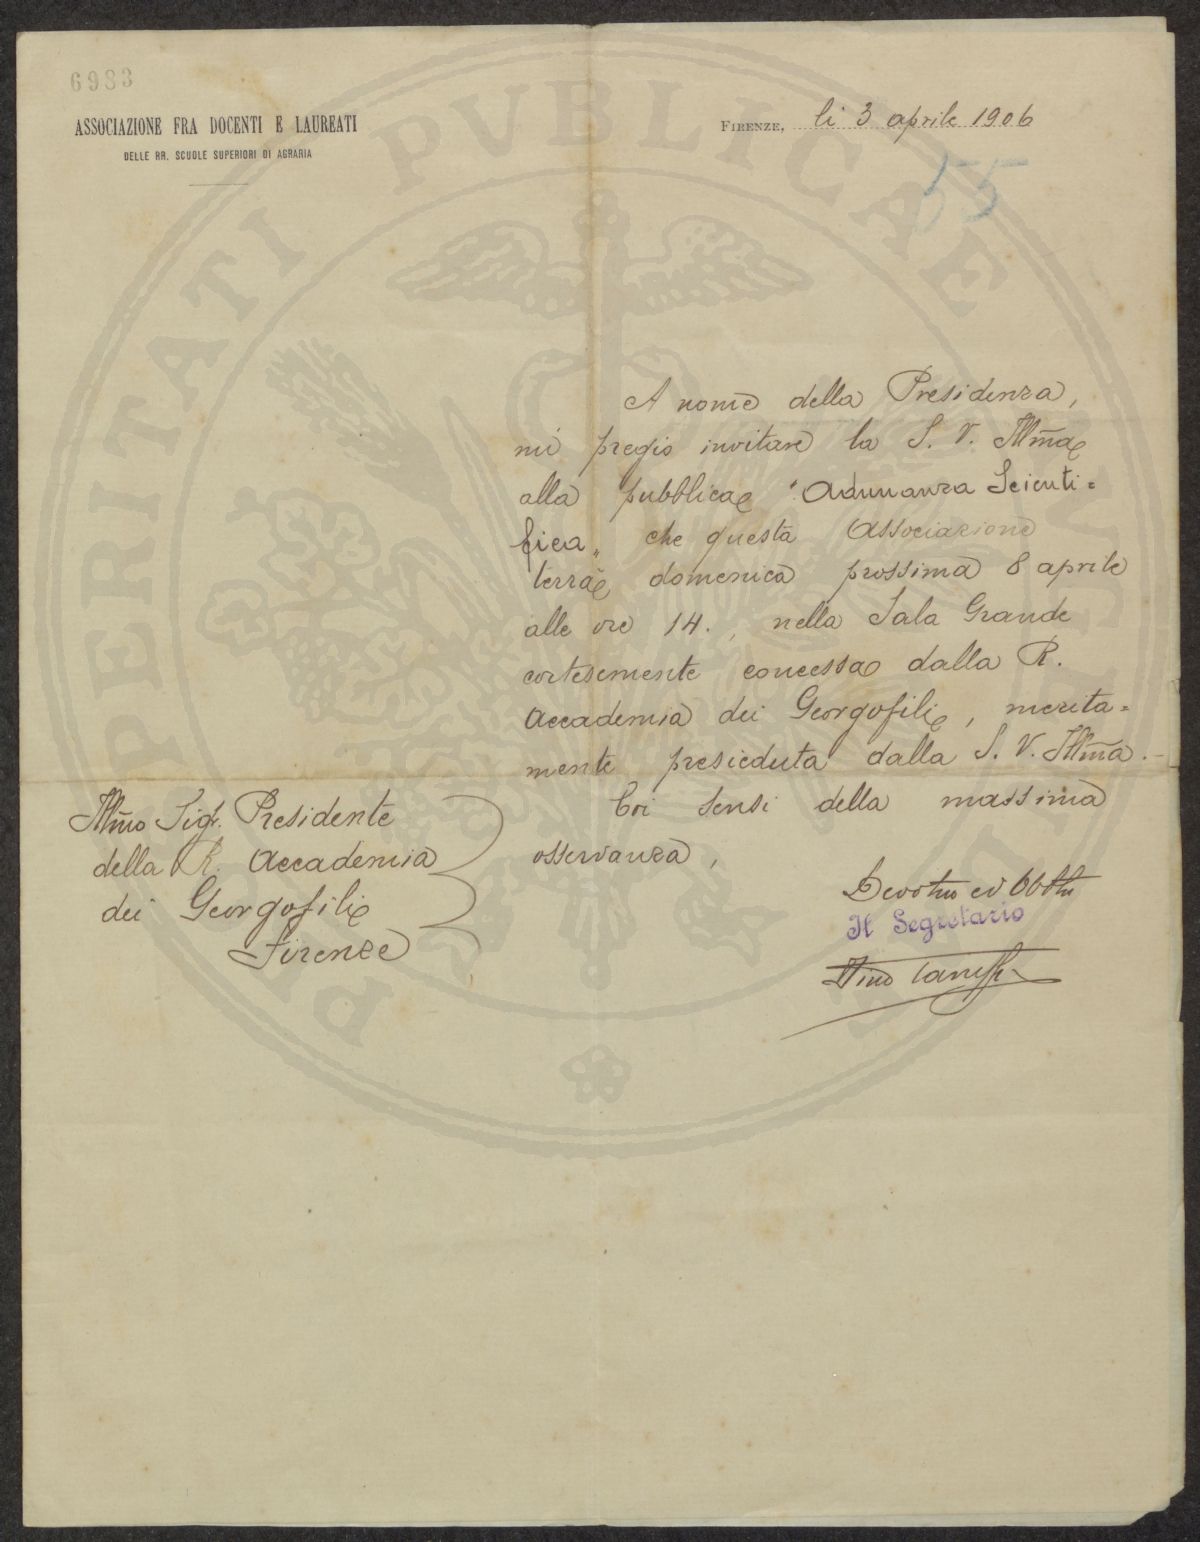 6983
ASSOCIAZIONE FRA DOCENTI E LAUREATI
DELLE RR. SCUOLE SUPERIORI DI AGRARIA
FIRENZE, li 3 aprile 1906
55
A nome della Presidenza,
mi pregio invitare la S. V. Illma
alla pubblica "Adunanza Scienti=
fica" che questa Associazione
terrà domenica prossima 8 aprile
alle ore 14., nella Sala Grande
cortesemente concessa dalla R.
Accademia dei Georgofili, merita=
mente presieduta dalla S. V. Illma.
Coi sensi della massima
osservanza,
Illmo Sigr. Presidente
della R. Accademia
dei Georgofili
Firenze
Devotmo ed Obbmo
Il Segretario
Vino
PROSPERITATI PUBLICAE